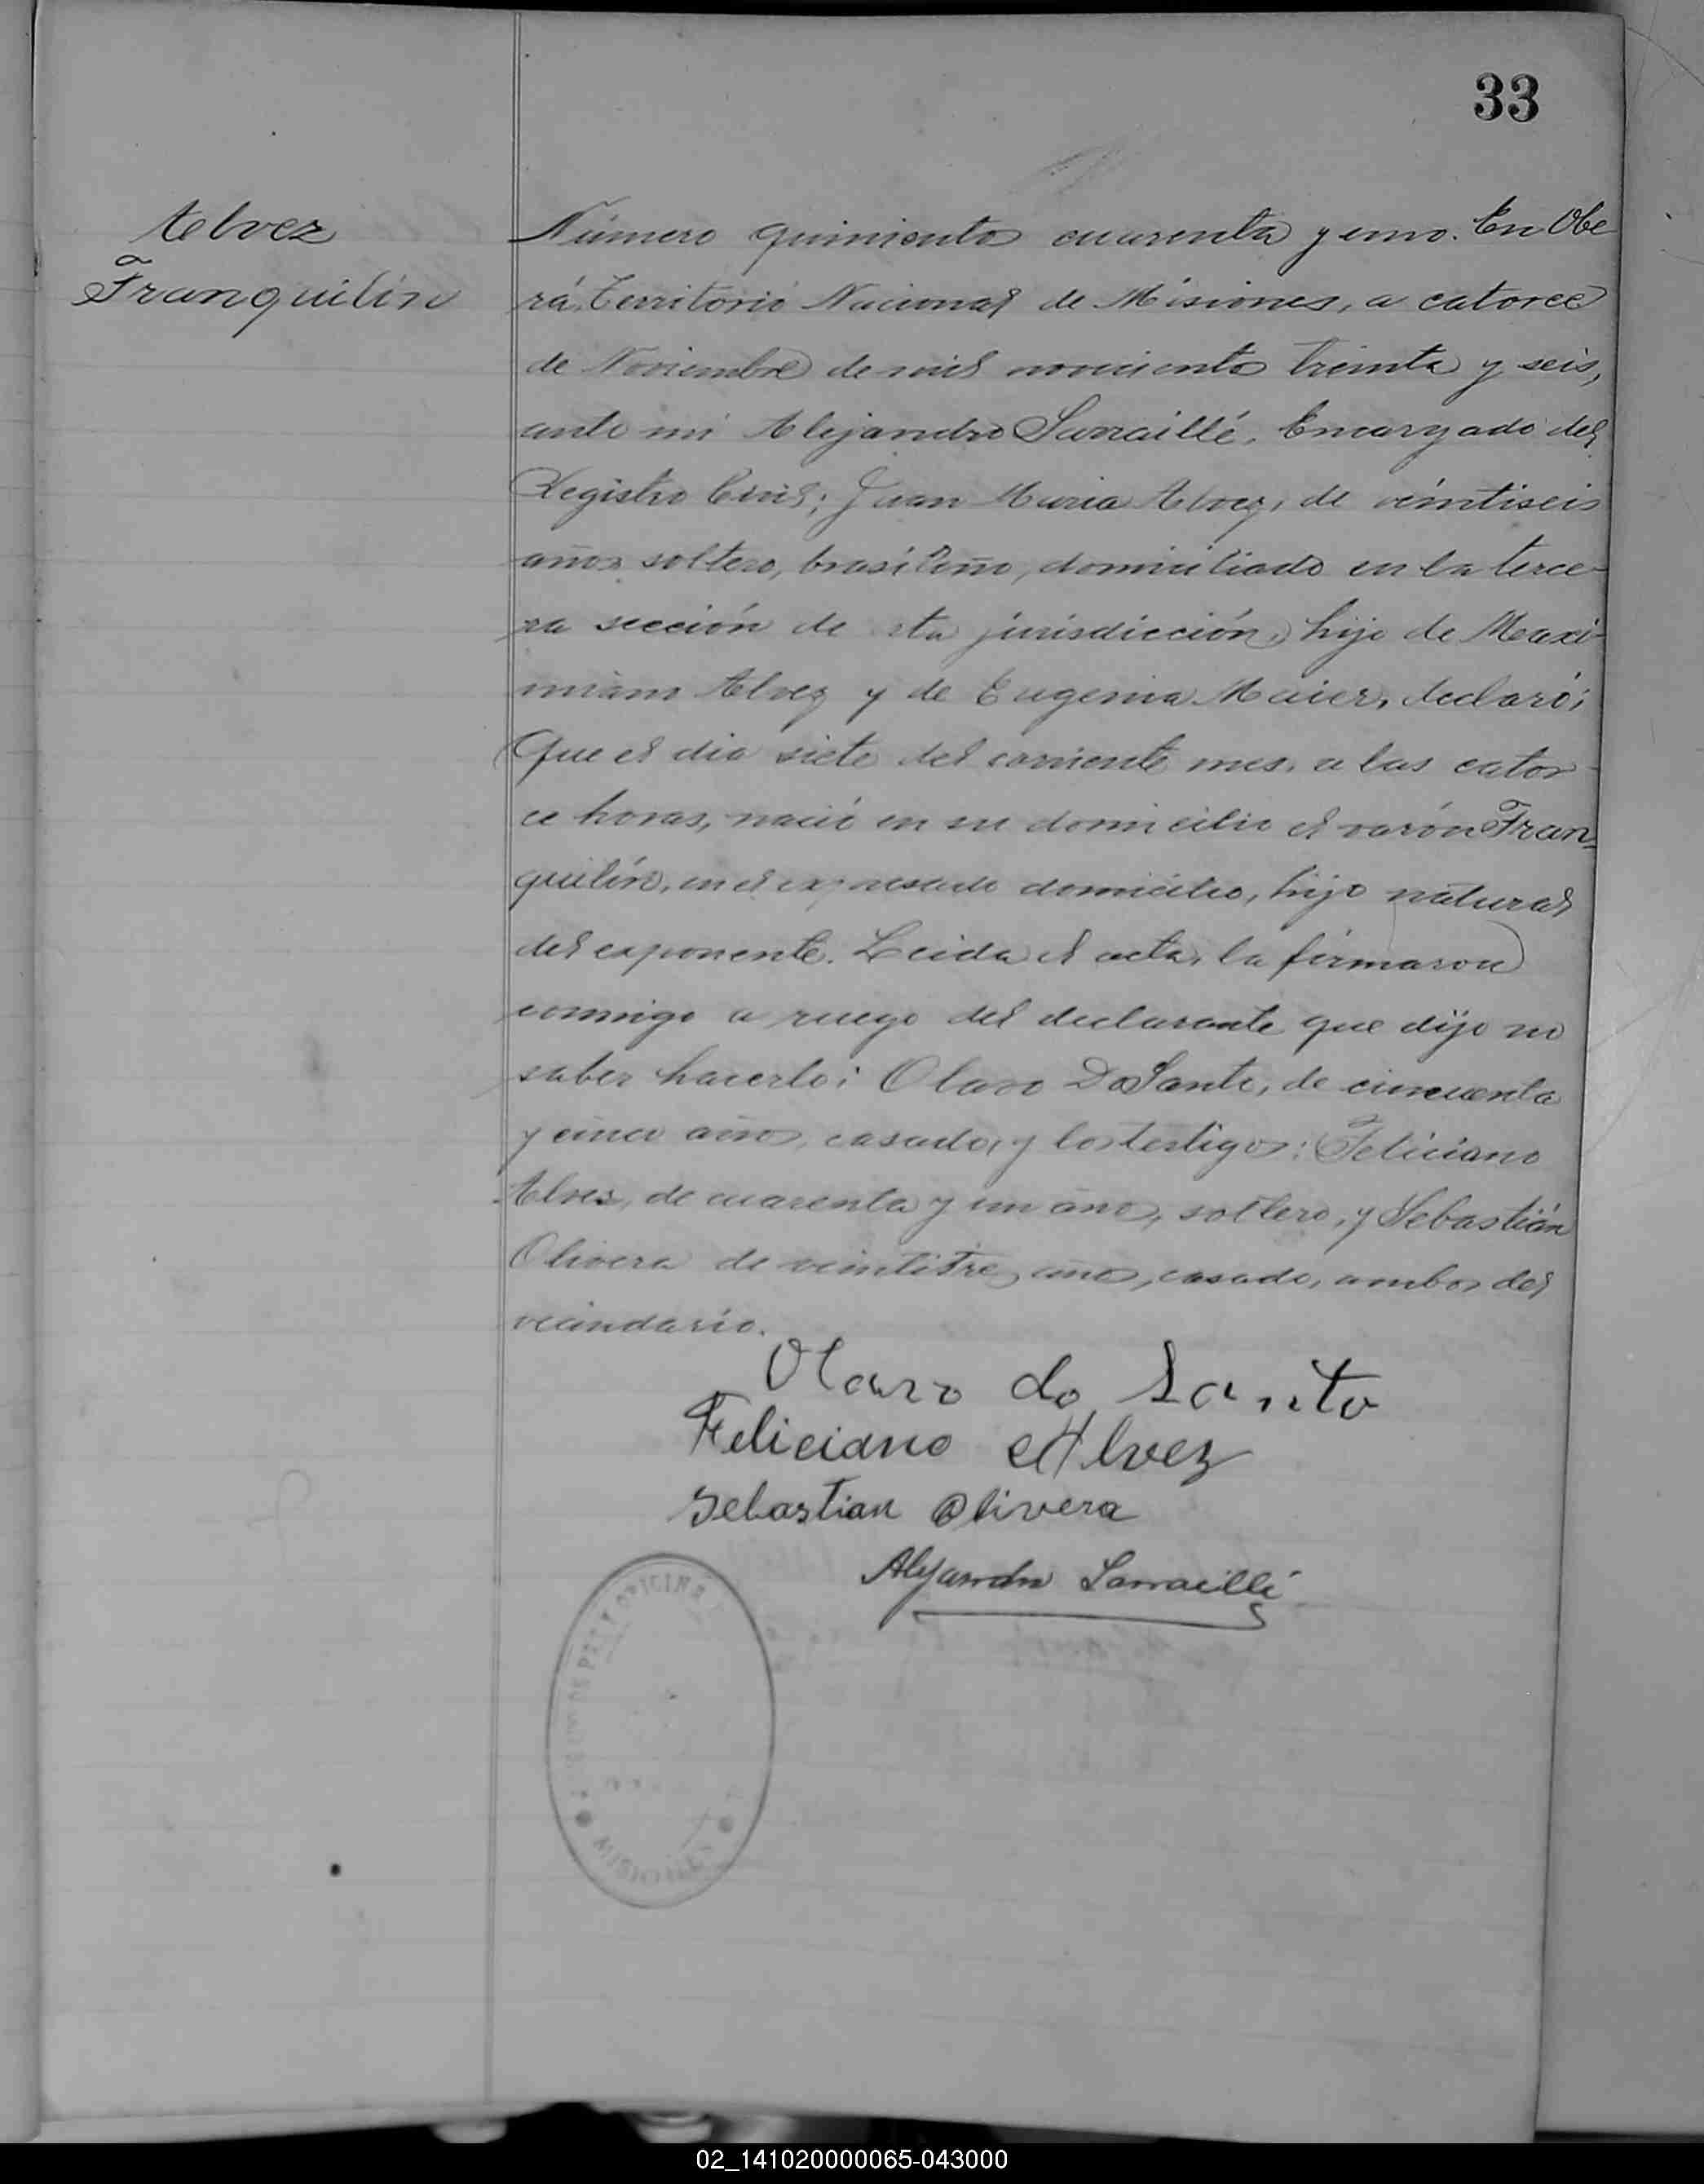 33
Alvez
Franquilín
Número quiniento cuarenta y uno. En Obe-
rá, Territorio Nacional de Misiones, a catorce
de Noviembre de mil noviciento treinta y seis,
ante mi Alejandro Sarraillé, Encargado del
Registro Civil; Juan Maria Alvez, de veintiseis
años soltero, brasileño, domiciliado en la terce-
ra sección de sta jurisdicción, hijo de Maxi-
miano Alvez y de Eugenia Maier, declaró;
Que el dia siete del corriente mes, a las cator-
ce horas, nació en su domicilio el varón Fran-
quilín, en el expresado domicilio, hijo natural
del exponente. Leida el acta, la firmaron
conmigo a ruego del declarante que dijo no
saber hacerlo; Olavo Do Santo, de cincuenta
y cinco años, casado, y los testigos: Feliciano
Alvez, de cuarenta y un año, soltero, y Sebastián
Olivera de veintitres año, casado, ambos del
vecindario.
Olavo do Santo
Feliciano Alvez
Sebastian Olivera
Alejandro Sarraillé
OFICINA
MISIONES
02_141020000065-043000